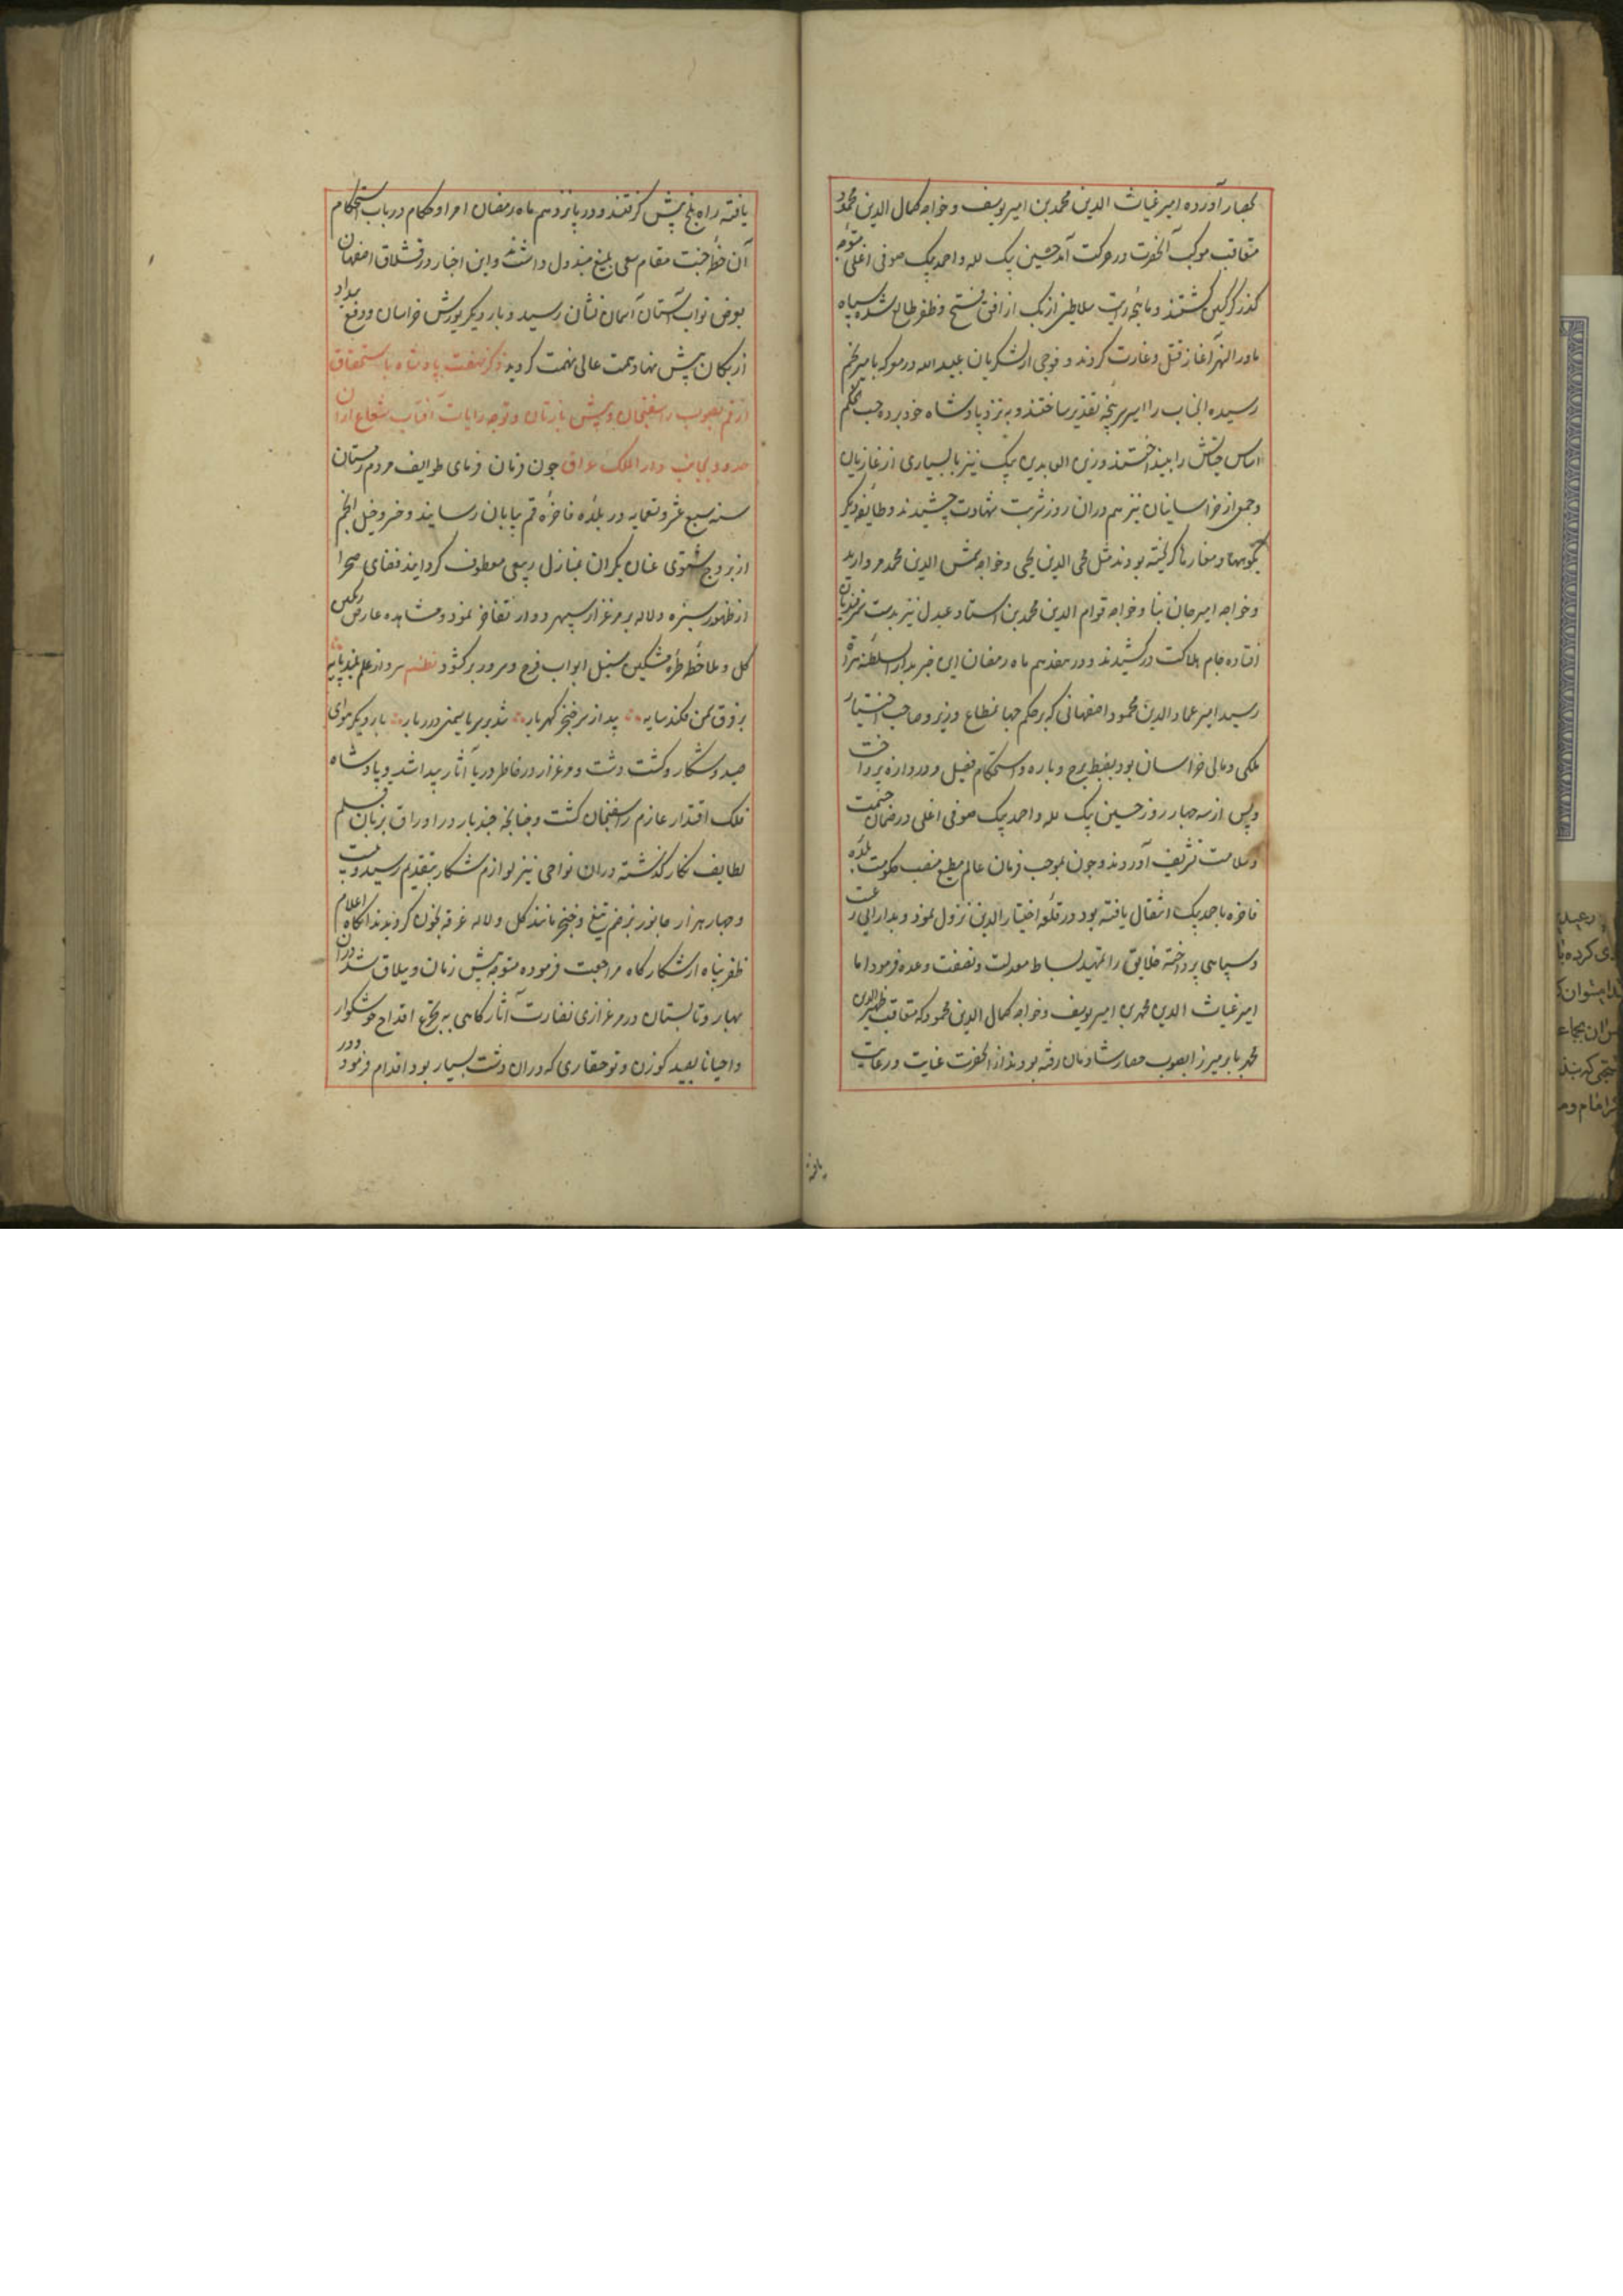 بحصار آورده امیر غیاث الدین محمد بن امیر یوسف و خواجه کمال الدین محمود
متعاقب موکب آنحضرت در حرکت آمد حسین بیک لله و احمد بیک صوفی اغلی متوجه
کذر کرکین کشتند و ماهچه رایت سلاطین ازبک از افق فتح و ظفر طالع شده سپاه
ماورا النهر آغاز قتل و غارت کردند و فوجی از لشکریان عبید الله در معرکه بامیر نجم
رسیده انجناب را اسیر سرپنجه تقدیر ساختند و به نزد پادشاه خود برده حسب الحکم
اساس حیاتش را بینداختند و زین العابدین بیک نیز با بسیاری از غازیان
و جمعی از خراسانیان نیز هم دران روز شربت شهادت چشیدند و طایفه دیکر
بکوهها و مغارها کریخته بودند مثل محی الدین یحیی و خواجه شمس الدین محمد مروارید
و خواجه امیر جان بنا و خواجه قوام الدین محمد بن استاد عبدل نیز بدست سمرقندیان
افتاده جام هلاکت درکشیدند و در هفدهم ماه رمضان این خبر بدار السلطنه هراة
رسید امیر عماد الدین محمود اصفهانی که بر حکم جهانمطاع وزیر و صاحب اختیار
ملکی و مالی خراسان بود بضبط برج و باره و استحکام فصیل و دروازه پرداخت
و پس از سه چهار روز حسین بیک لله و احمد بیک صوفی اغلی در ضمان حشمت
و سلامت تشریف آوردند و چون بموجب فرمان عالم مطیع منصب حکومت بلده
فاخره باحمد بیک انتقال یافته بود در قلعه اختیار الدین نزول نمود و بدارایی رعیت
و سپاهی پرداخته خلایق را بتمهید بساط معدلت و نصفت وعده فرمود اما
امیر غیاث الدین محمد بن امیر یوسف و خواجه کمال الدین محمود که متعاقب ظهیر الدین
محمد بابر میرزا بصوب حصار شادمان رفته بودند از انحضرت عنایت و رعایت
یافته
یافته راه بلخ پیش کرفتند و در پانزدهم ماه رمضان امرا و حکام در باب استحکام
آن خطه جنت مقام سعی بلیغ مبذول داشتند و این اخبار در قشلاق اصفهان
بعرض نواب آستان آسمان نشان رسید و بار دیکر یورش خراسان و دفع بیداد
ازبکان پیش نهاد همت عالی نهمت کردید ذکر نهضت پادشاه باستحقاق
از قم بصوب راسفنجان و پیش بازتان و توجه رایات آفتاب شعاع ازان
حدود بجانب دار الملک عراق چون فرمان فرمای طوایف مردم زمستان
سنه سبع عشر و تسعمایه در بلده فاخره قم بپایان رسانید و خسرو خیل انجم
از بروج شتوی عنان یکران بمنازل ربیعی معطوف کردانید فضای صحرا
از ظهور سبزه و لاله بر مرغزار سپهر دوار تفاخر نمود و مشاهده عارض رنکین
کل و ملاحظه طره مشکین سنبل ابواب فرح و سرور برکشود نظم سرو از علم بلند پایه
بر فرق چمن فکند سایه بید از سر خنجر کهربار شد بر سر یاسمن درر بار بار دیکر هوای
صید و شکار و کشت دشت و مرغزار در خاطر دریا آثار پیدا شد و پادشاه
فلک اقتدار عازم راسفنجان کشت و چنانچه چند بار در اوراق بزبان قلم
لطایف نکار کذشته دران نواحی نیز لوازم شکار بتقدیم رسید و بیست
و چهار هزار جانور بزخم تیغ و خنجر مانند کل و لاله غرقه بخون کردیدند انکاه اعلام
ظفر پناه از شکارکاه مراجعت فرموده متوجه پیش زمان و ییلاق شد و دران
بهار و تابستان در مرغزاری نضارت آثار کاهی به تجرع اقداح خوشکوار
و احیانا بصید کوزن و توحقاری که دران دشت بسیار بود اقدام فرمود و در